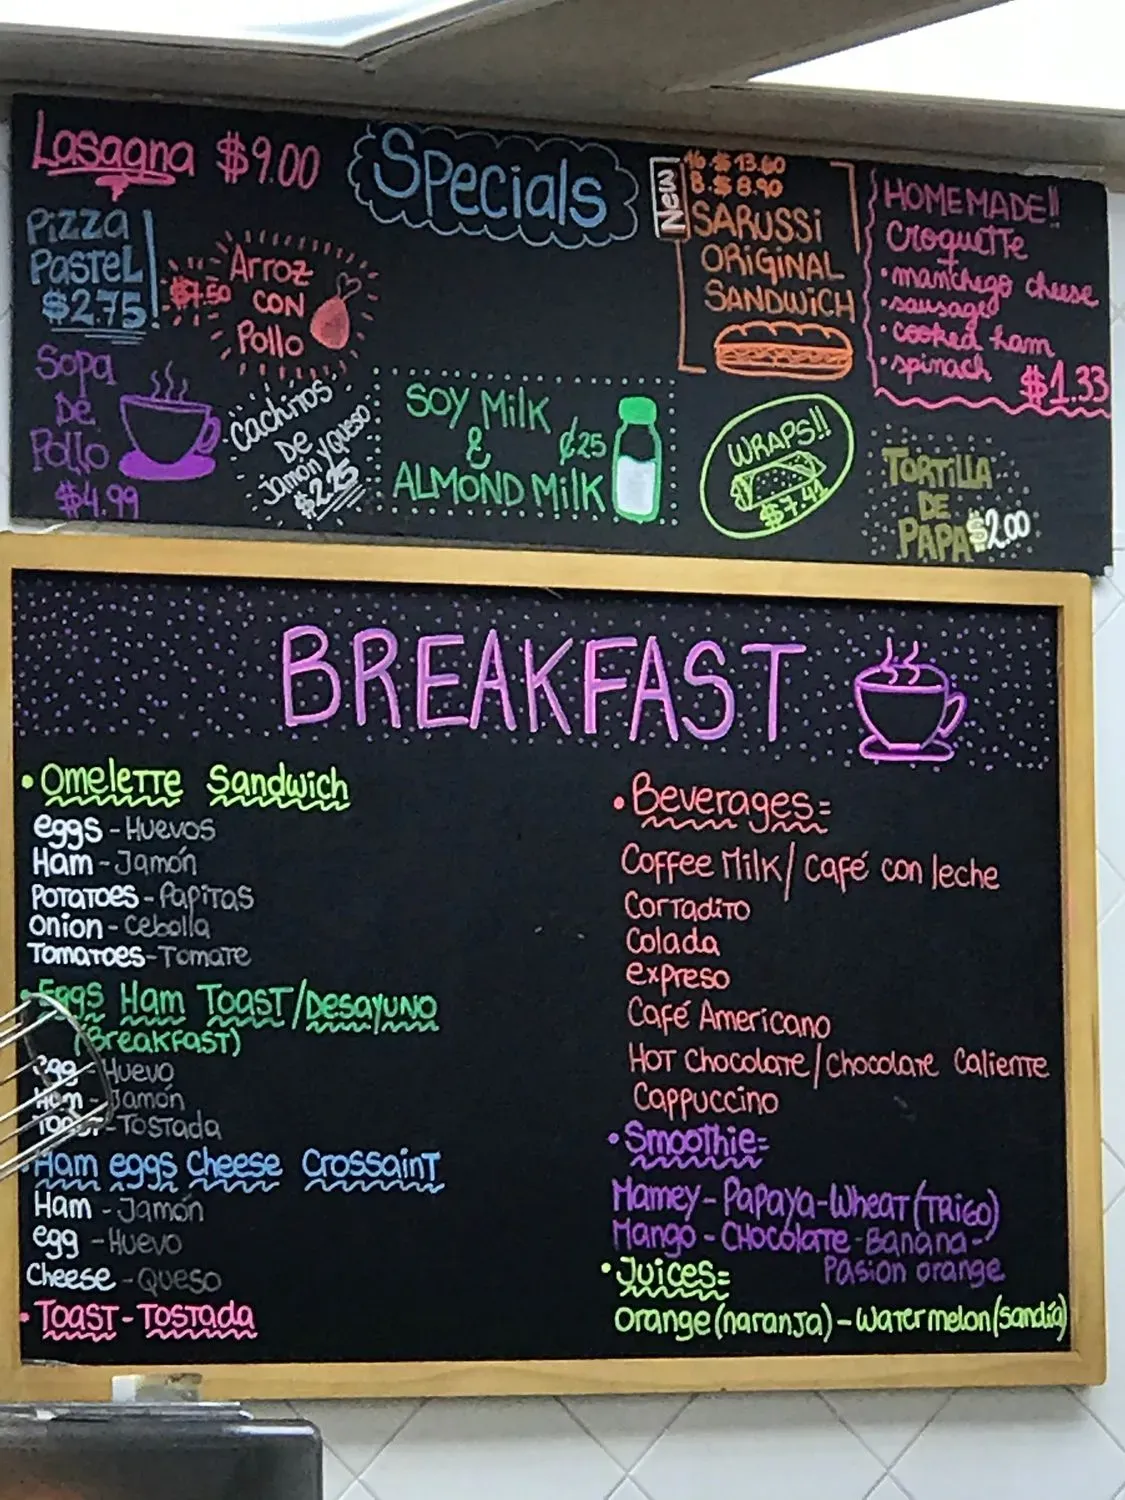 Lasagna $9.00
Specials
Pizza
Pastel
$2.75
$7.50
Arroz
con
Pollo
New
16 $13.60
8. $8.90
SARUSSI
ORIGINAL
SANDWICH
HOMEMADE!!
Croquette
• manchego cheese
• sausage
• cooked ham
• spinach
$1.33
Sopa
De
Pollo
$4.99
Cachitos
De
Jamón y Queso
$2.25
SOY Milk
&
ALMOND Milk
¢25
WRAPS!!
$7.41
TORTILLA
DE
PAPA $2.00
BREAKFAST
• Omelette Sandwich
eggs - Huevos
Ham - Jamón
Potatoes - Papitas
Onion - Cebolla
Tomatoes - Tomate
• Eggs Ham Toast / Desayuno
(Breakfast)
Egg - Huevo
Ham - Jamón
Toast - Tostada
• Ham eggs Cheese Crossaint
Ham - Jamón
egg - Huevo
Cheese - Queso
• Toast - Tostada
• Beverages=
Coffee Milk / Café con leche
Cortadito
Colada
expreso
Café Americano
Hot Chocolate / Chocolate Caliente
Cappuccino
• Smoothie=
Mamey - Papaya - Wheat (Trigo)
Mango - Chocolate - Banana -
Pasion orange
• Juices=
Orange (naranja) - Water melon (sandía)